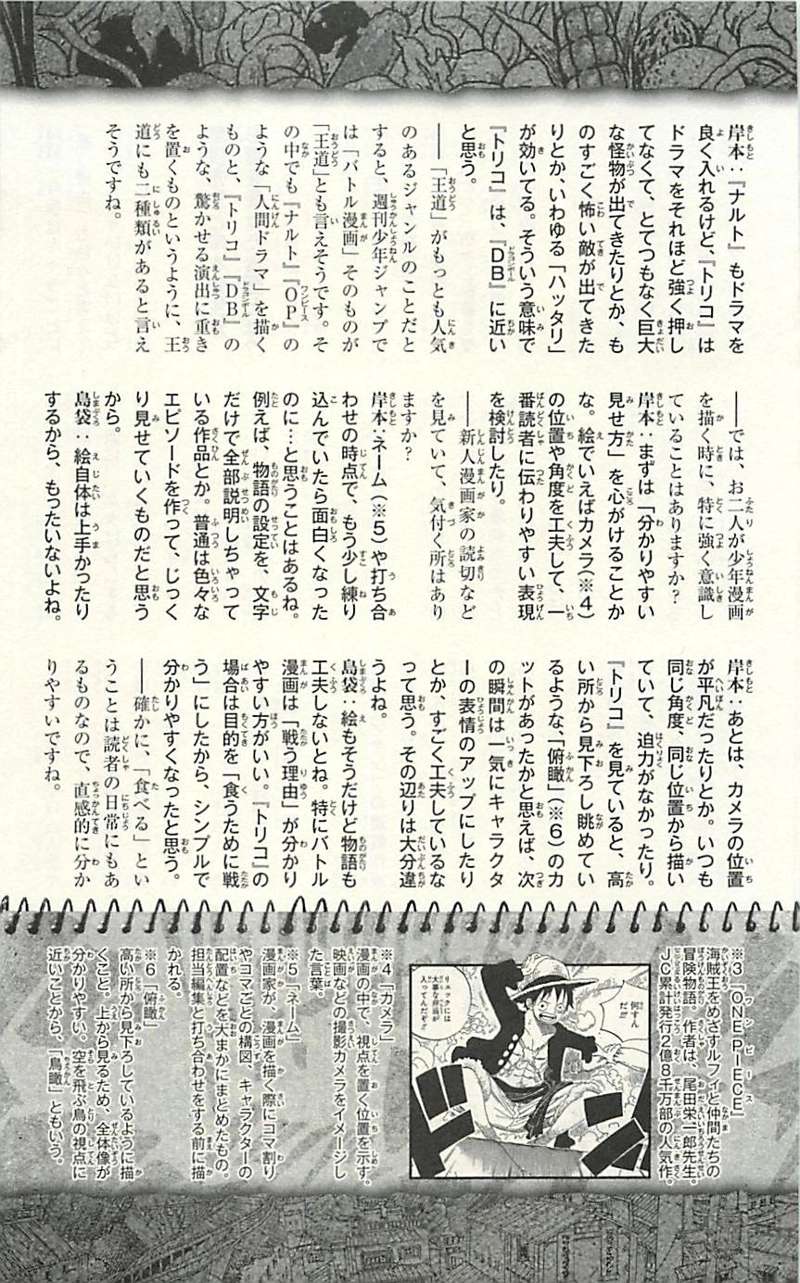 岸本：『ナルト』もドラマを
良く入れるけど、『トリコ』は
ドラマをそれほど強く押し
てなくて、とてつもなく巨大
な怪物が出てきたりとか、も
のすごく怖い敵が出てきた
りとか、いわゆる「ハッタリ」
が効いてる。そういう意味で
『トリコ』は、『DB』に近い
と思う。
――「王道」がもっとも人気
のあるジャンルのことだと
すると、週刊少年ジャンプで
は「バトル漫画」そのものが
「王道」とも言えそうです。そ
の中でも『ナルト』『OP』の
ような「人間ドラマ」を描く
ものと、『トリコ』『DB』の
ような、驚かせる演出に重き
を置くものというように、王
道にも二種類があると言え
そうですね。
――では、お二人が少年漫画
を描く時に、特に強く意識し
ていることはありますか？
岸本：まずは「分かりやすい
見せ方」を心がけることか
な。絵でいえばカメラ（※4）
の位置や角度を工夫して、一
番読者に伝わりやすい表現
を検討したり。
――新人漫画家の読切など
を見ていて、気付く所はあり
ますか？
岸本：ネーム（※5）や打ち合
わせの時点で、もう少し練り
込んでいたら面白くなった
のに…と思うことはあるね。
例えば、物語の設定を、文字
だけで全部説明しちゃって
いる作品とか。普通は色々な
エピソードを作って、じっく
り見せていくものだと思う
から。
島袋：絵自体は上手かったり
するから、もったいないよね。
岸本：あとは、カメラの位置
が平凡だったりとか。いつも
同じ角度、同じ位置から描い
ていて、迫力がなかったり。
『トリコ』を見ていると、高
い所から見下ろし眺めてい
るような、「俯瞰」（※6）のカ
ットがあったかと思えば、次
の瞬間は一気にキャラクタ
ーの表情のアップにしたり
とか、すごく工夫しているな
って思う。その辺りは大分違
うよね。
島袋：絵もそうだけど物語も
工夫しないとね。特にバトル
漫画は「戦う理由」が分かり
やすい方がいい。『トリコ』の
場合は目的を「食うために戦
う」にしたから、シンプルで
分かりやすくなったと思う。
――確かに、「食べる」とい
うことは読者の日常にもあ
るものなので、直感的に分か
りやすいですね。
※3「ONE PIECE」
海賊王をめざすルフィと仲間たちの
冒険物語。作者は、尾田栄一郎先生。
JC累計発行2億8千万部の人気作。
何すん
だ!!
リュックには
大事な弁当が
入ってんだぞ!!
※4「カメラ」
漫画の中で、視点を置く位置を示す。
映画などの撮影カメラをイメージし
た言葉。
※5「ネーム」
漫画家が、漫画を描く際にコマ割り
やコマごとの構図、キャラクターの
配置などを大まかにまとめたもの。
担当編集と打ち合わせをする前に描
かれる。
※6「俯瞰」
高い所から見下ろしているように描
くこと。上から見るため、全体像が
分かりやすい。空を飛ぶ鳥の視点に
近いことから、「鳥瞰」ともいう。